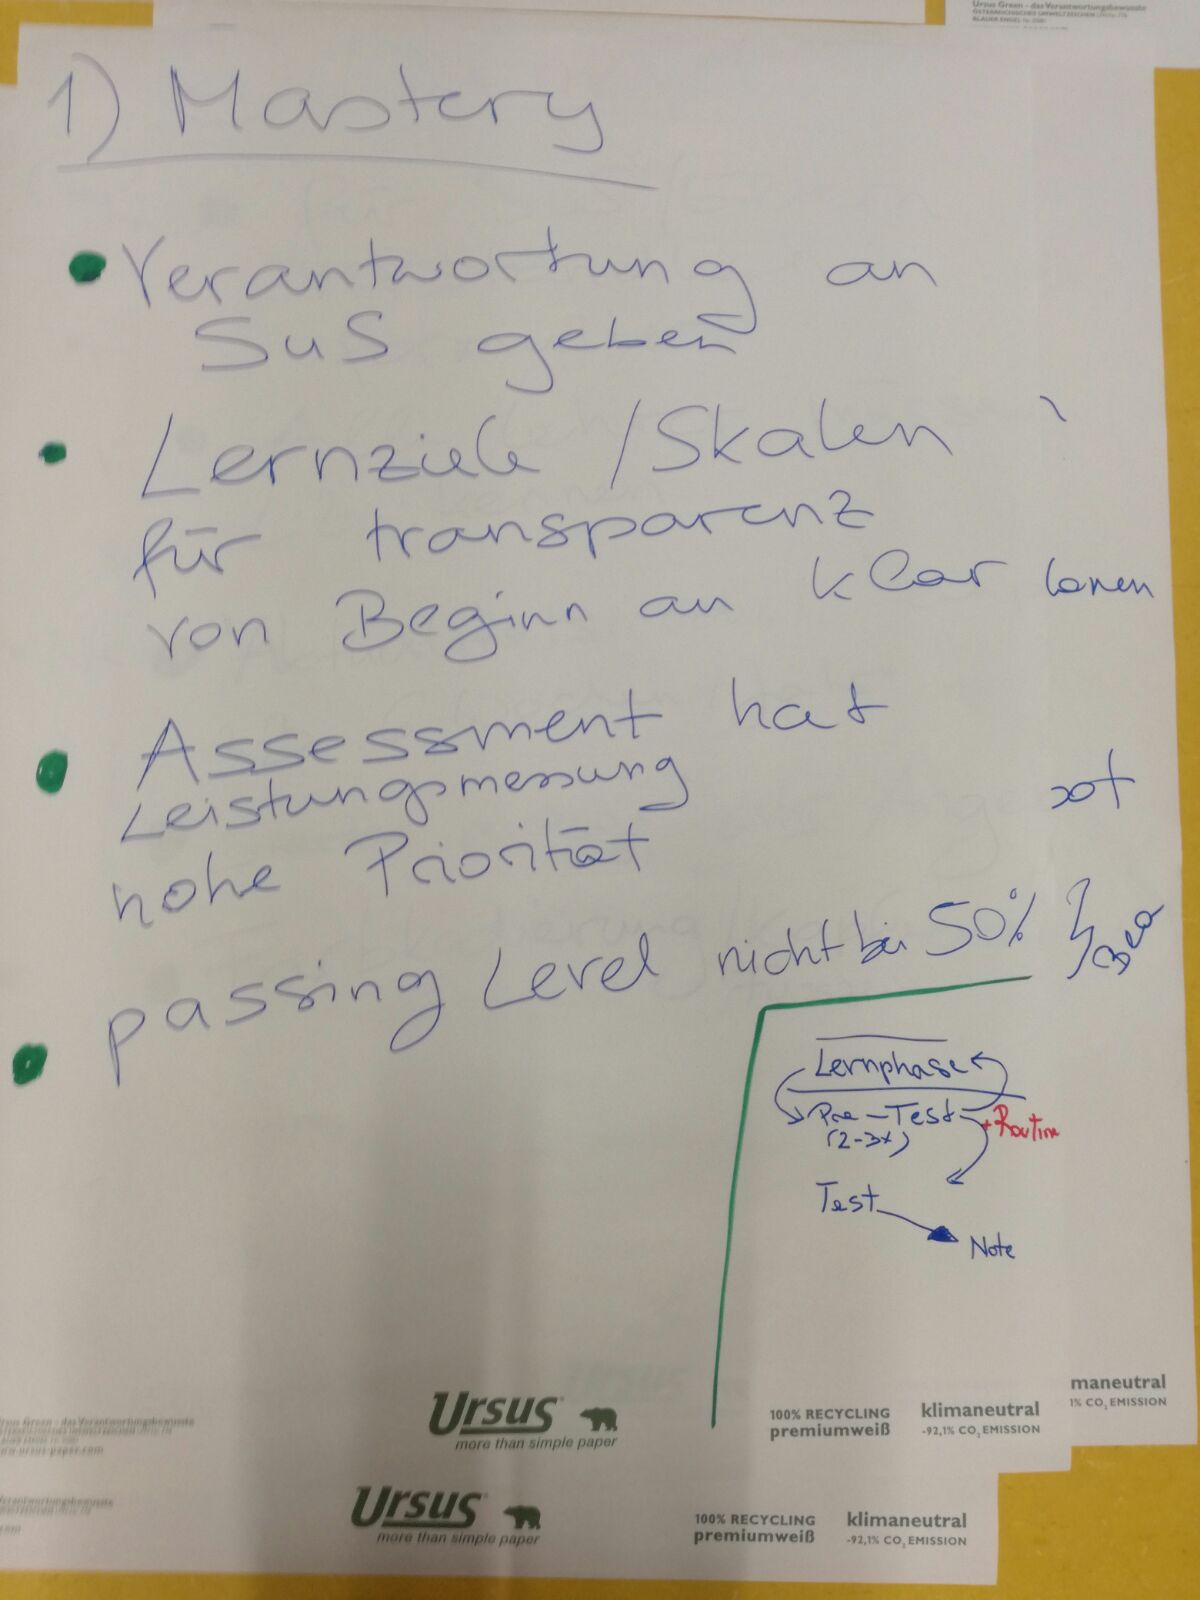 Ursus Green - das Verantwortungsbewusste
ÖSTERREICHISCHES UMWELTZEICHEN
BLAUER ENGEL
1) Mastery
Verantwortung an
SuS geben
Lernziele / Skalen
für transparenz
von Beginn an klar
Assessment hat
Leistungsmessung
hohe Priorität
passing Level nicht bei 50%
Lernphase
Pre-Test
(2-3x)
+Routine
Test
Note
Ursus
more than simple paper
100% RECYCLING
premiumweiß
klimaneutral
-92,1% CO₂ EMISSION
maneutral
1% CO₂ EMISSION
Ursus Green - das Verantwortungsbewusste
www.ursus-paper.com
Ursus
more than simple paper
100% RECYCLING
premiumweiß
klimaneutral
-92,1% CO₂ EMISSION